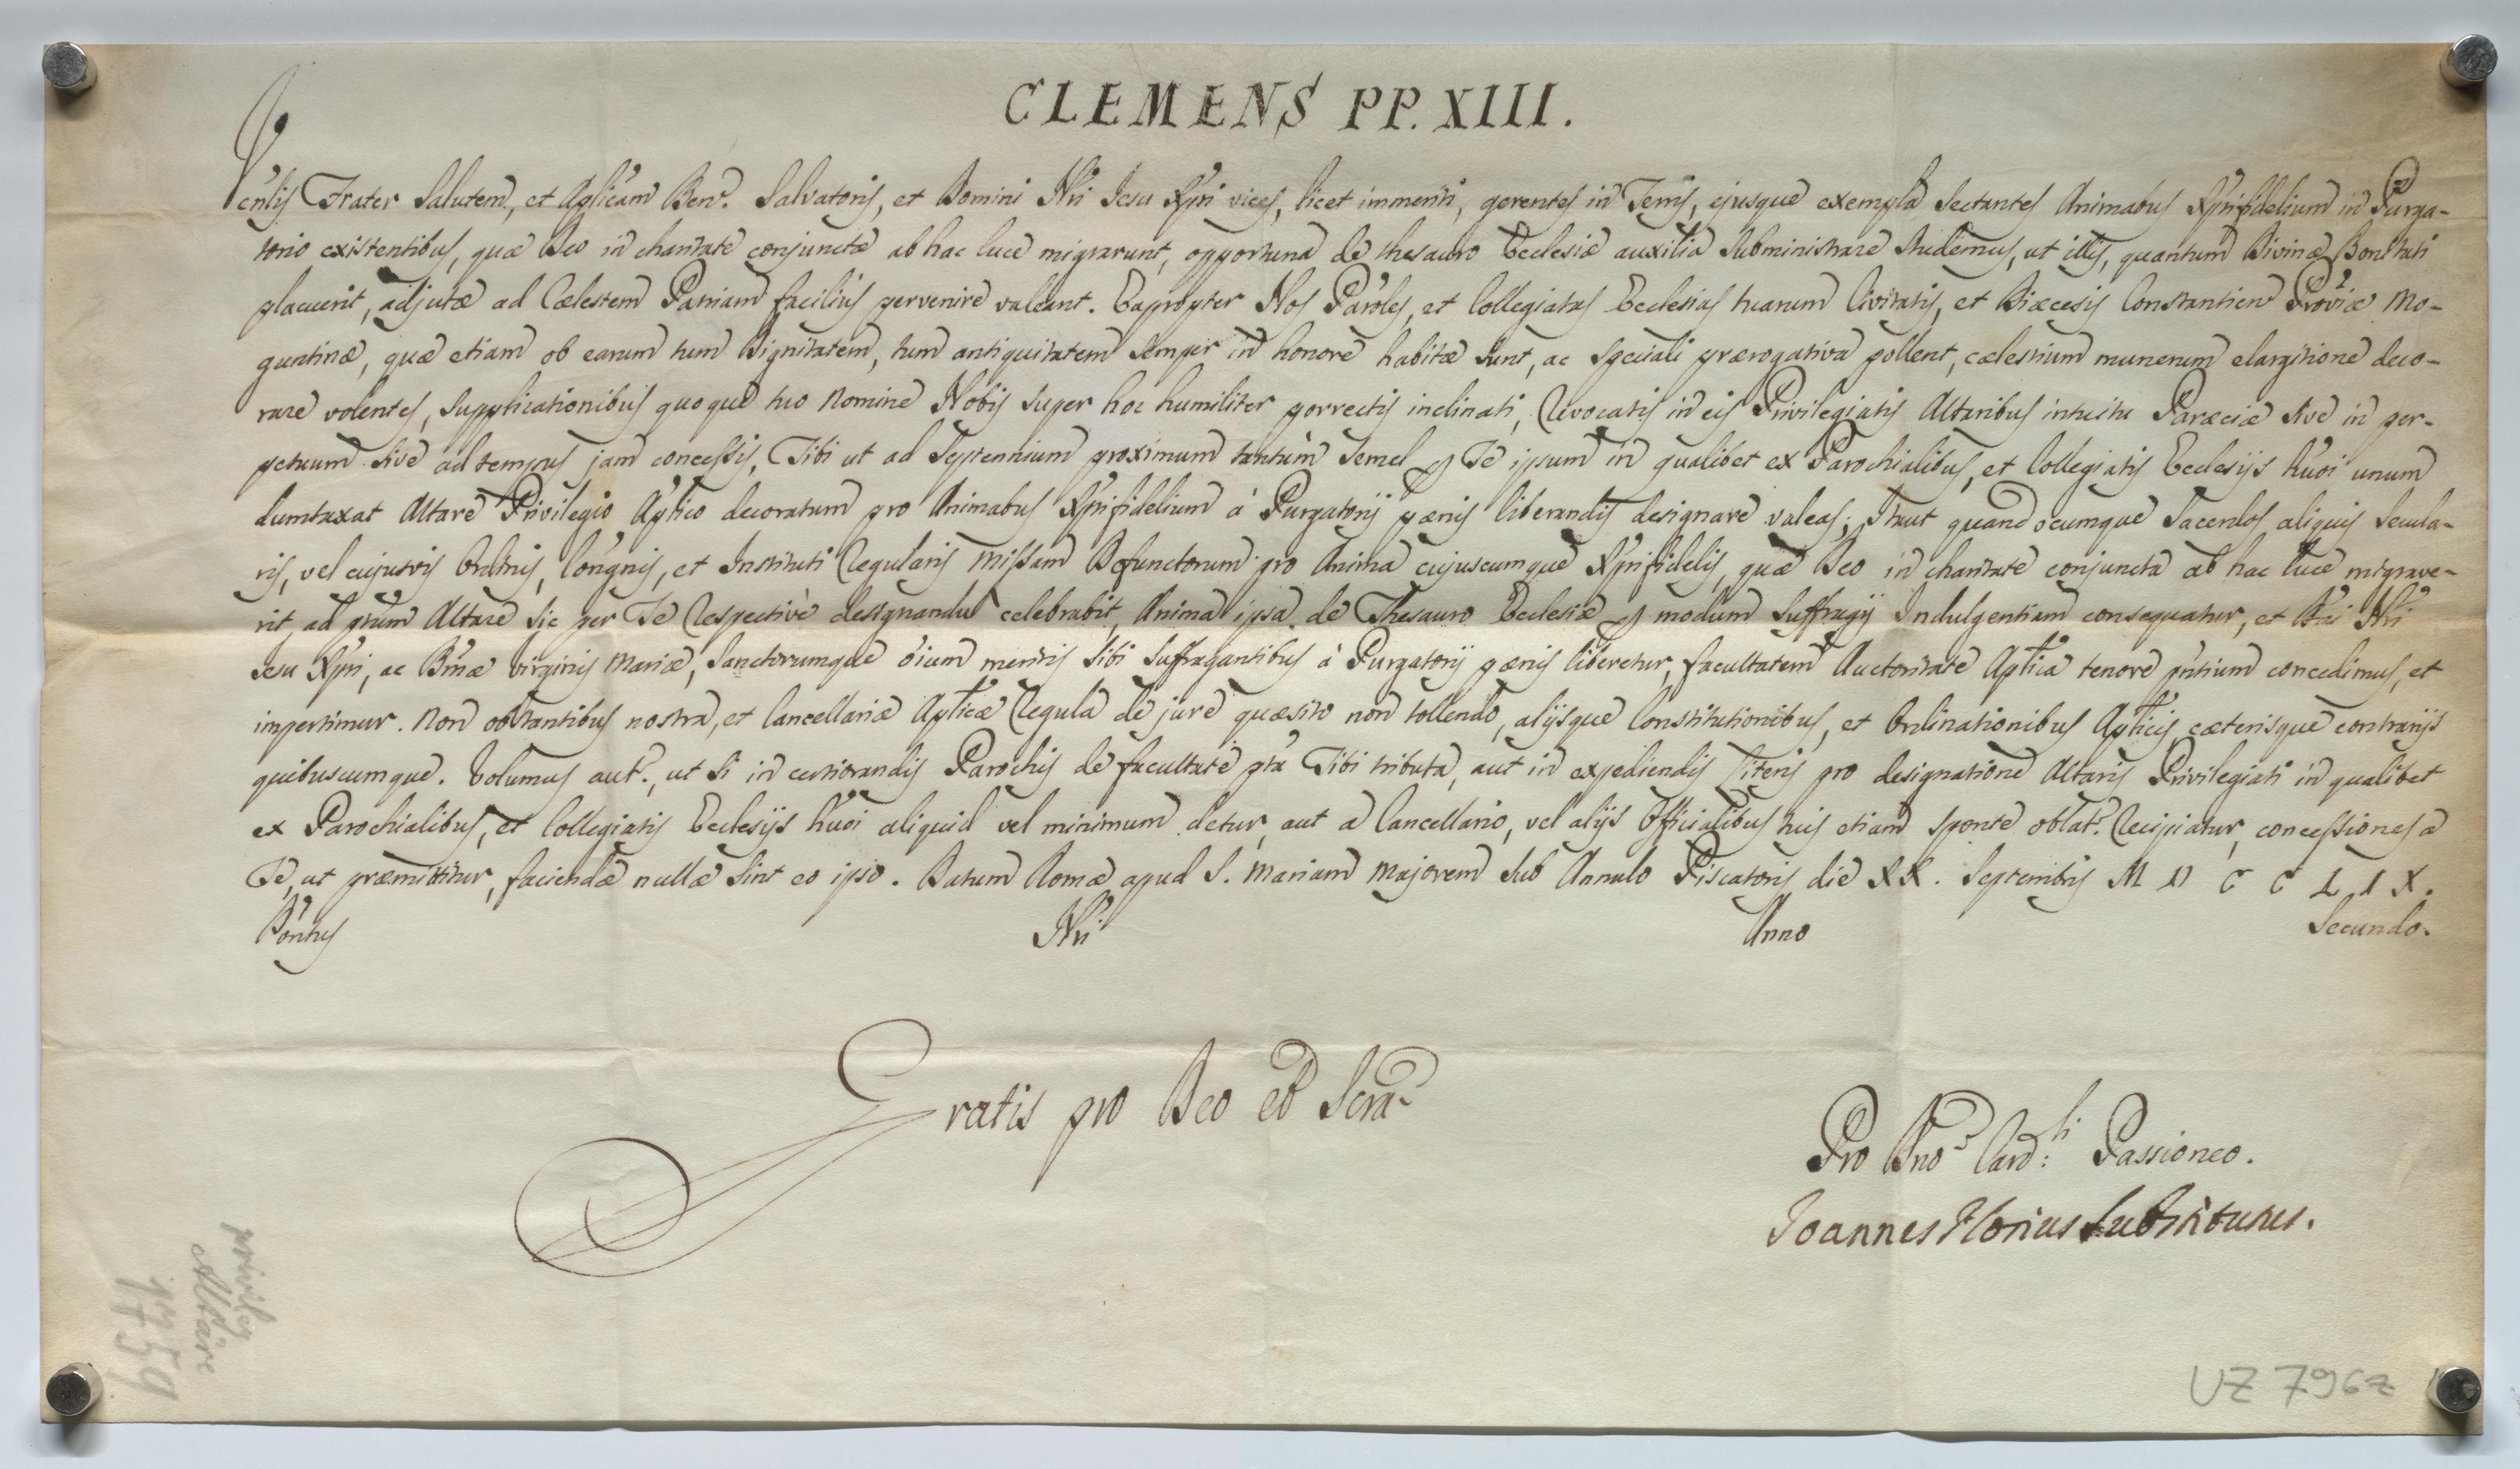 CLEMENS PP. XIII.
Venlis Frater Salutem, et Aplicam Ben. Salvatoris, et Domini Nri Jesu Xpri vices, licet immeriti, gerentes in Terris, ejusque exempla sectantes Animabus Xprifidelium in Purga-
torio existentibus, quæ Deo in charitate conjunctæ ab hac luce migrarunt, opportuna de thesauro Ecclesiæ auxilia subministrare studemus, ut illis, quantum Divinæ Bonitati
placuerit, adjutæ ad Cælestem Patriam facilius pervenire valeant. Eapropter Nos Paroles, et Collegiatas Ecclesias tuarum Civitatis, et Diæcesis Constantien Proviæ Mo-
guntinæ, quæ etiam ob earum tum Dignitatem, tum antiquitatem semper in honore habitæ sunt, ac speciali prærogativa pollent, cælestium munerum elargitione deco-
rare volentes, supplicationibus quoque tuo nomine Nobis super hoc humiliter porrectis inclinati, Revocatis in eis Privilegiatis Altaribus intuitu Paræciæ sive in per-
petuum sive ad tempus jam concessis, Tibi ut ad Septennium proximum tantum semel p Te ipsum in qualibet ex Parochialibus, et Collegiatis Ecclesijs huoi unum
dumtaxat Altare Privilegio Aplico decoratum pro Animabus Xprifidelium à Purgatorij pænis liberandis designare valeas; Itaut quandocumque Sacerdos aliquis secula-
ris, vel cujusvis Ordinis, Congnis, et Instituti Regularis Missam Defunctorum pro Anima cujuscumque Xprifidelis, quæ Deo in charitate conjuncta ab hac luce migrave-
rit, ad ptum Altare sic per Te Respectivè designandum celebrabit, Anima ipsa de Thesauro Ecclesiæ p modum suffragij Indulgentiam consequatur, et Dni Nri
Jesu Xpri, ac Bmæ Virginis Mariæ, Sanctorumque oium meritis sibi suffragantibus à Purgatorij pænis liberetur, facultatem Auctoritate Aplica tenore pntium concedimus, et
impertimur. Non obstantibus nostra, et Cancellariæ Aplicæ Regula de jure quæsito non tollendo, alijsque Constitutionibus, et Ordinationibus Aplicis, cæterisque contrarijs
quibuscumque. Volumus aut., ut si in certiorandis Parochis de facultate pta Tibi tributa, aut in expediendis Literis pro designatione Altaris Privilegiati in qualibet
ex Parochialibus, et Collegiatis Ecclesijs huoi aliquid vel minimum detur, aut a Cancellario, vel alijs Officialibus tuis etiam sponte oblat. Recipiatur, concessiones a
Te, ut præmittitur, faciendæ nullæ sint eo ipso. Datum Romæ apud S. Mariam Majorem sub Annulo Piscatoris die XX. Septembris M D C C L I X.
Pontus Nri Anno Secundo.
Gratis pro Deo et Scra
Pro Dno Card:li Passioneo.
Joannes Florius Substitutus.
privileg
Altare
1759
UZ 7962